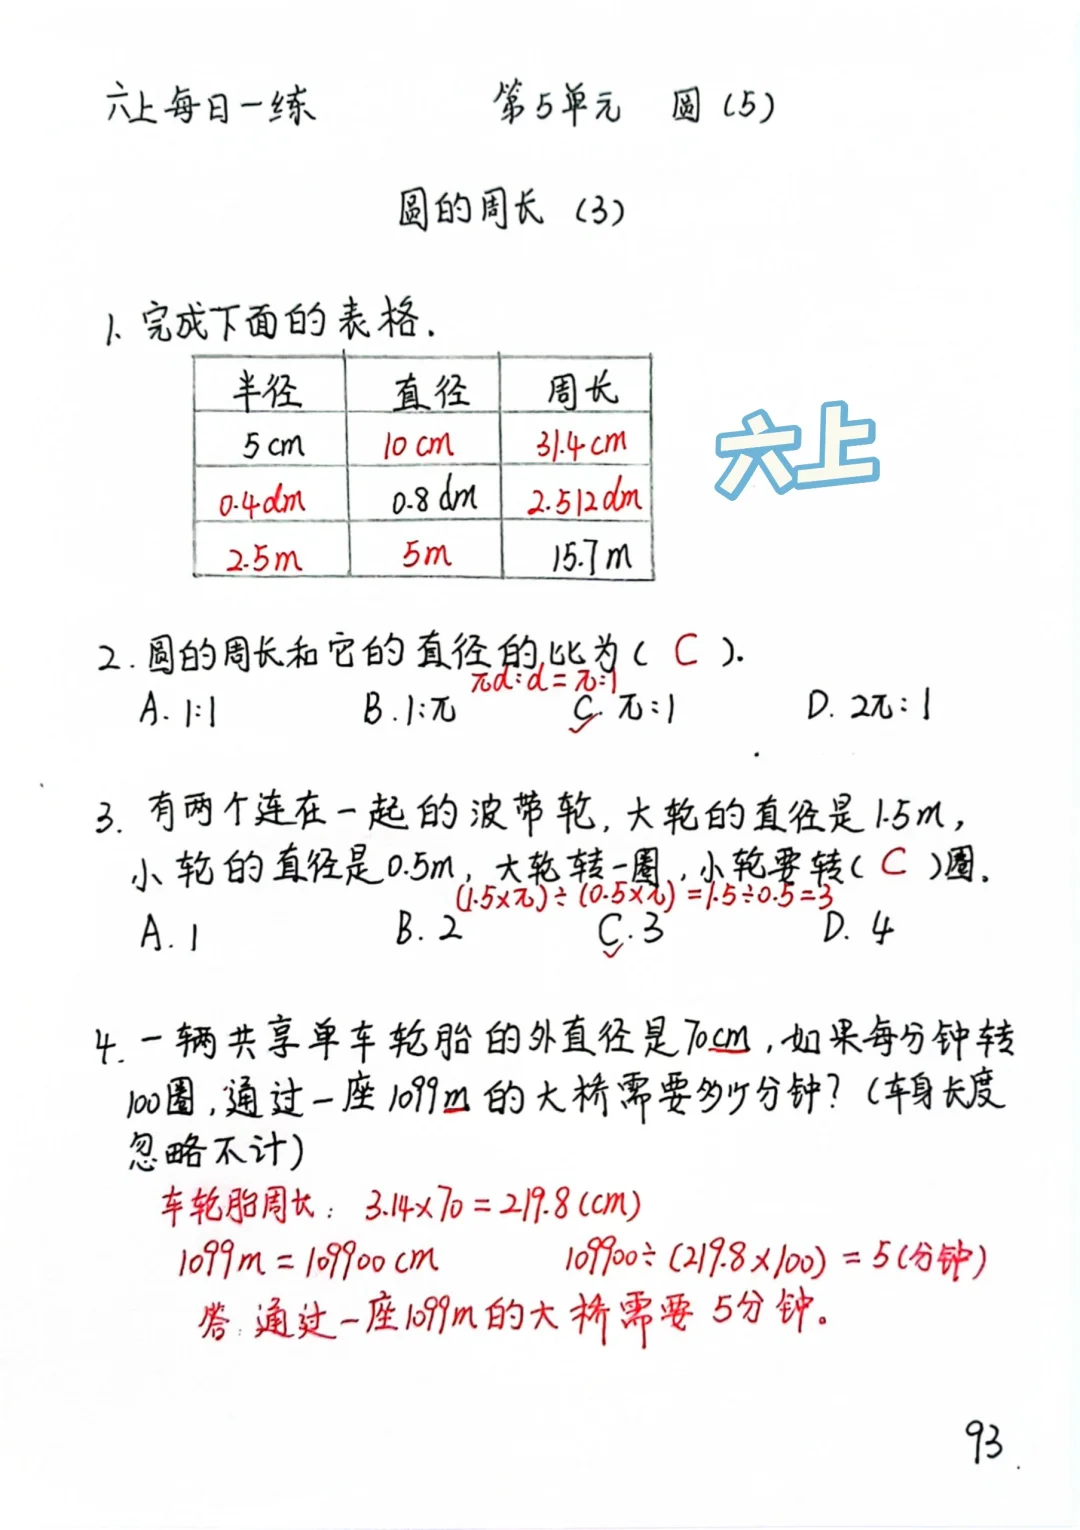 六上每日一练 第5单元 圆(5)
圆的周长(3)
1、完成下面的表格.
半径 直径 周长
5cm 10cm 31.4cm
0.4dm 0.8dm 2.512dm
2.5m 5m 15.7m
六上
2.圆的周长和它的直径的比为( C ).
πd:d=π:1
A. 1:1 B. 1:π C. π:1 D. 2π:1
3. 有两个连在一起的波带轮,大轮的直径是1.5m,
小轮的直径是0.5m,大轮转一圈,小轮要转( C )圈.
(1.5×π)÷(0.5×π)=1.5÷0.5=3
A. 1 B. 2 C. 3 D. 4
4.一辆共享单车轮胎的外直径是70cm,如果每分钟转
100圈,通过一座1099m的大桥需要多少分钟?(车身长度
忽略不计)
车轮胎周长: 3.14×70=219.8(cm)
1099m=109900cm 109900÷(219.8×100)=5(分钟)
答:通过一座1099m的大桥需要5分钟。
93